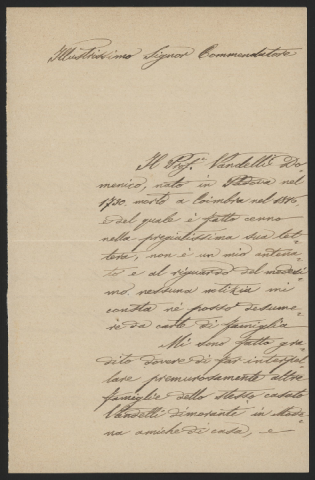 Illustrissimo Signor Commendatore
Il Prof.r Vandelli Do=
menico, nato in Padova nel
1730 morto a Coimbra nel 1816,
e del quale è fatto cenno
nella pregiatissima sua let=
tera, non è un mio antena=
to e al riguardo del medesi=
mo nessuna notizia mi
consta nè posso desume=
re da carte di famiglia
Mi sono fatto gra=
dito dovere di far interpel=
lare premurosamente altre
famiglie dello stesso casato
Vandelli dimorante in Mode=
na amiche di casa, e